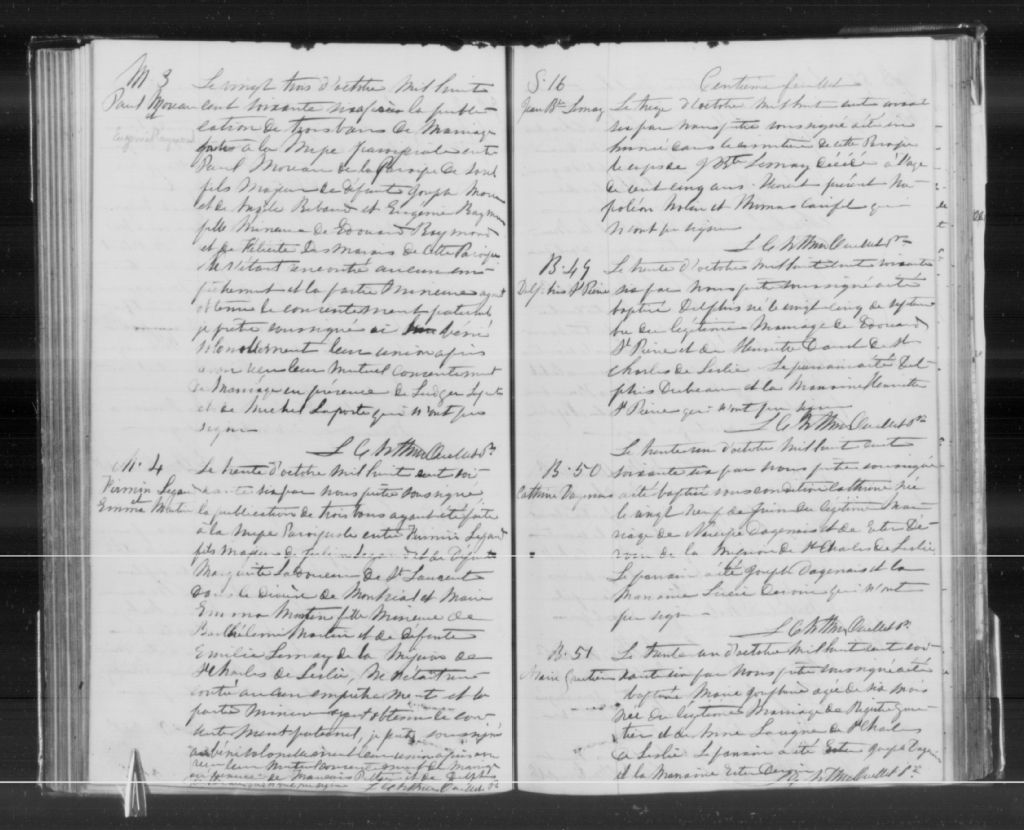 M 3
Paul Moreau
Eugenie Raymond
Le vingt trois d'octobre mil huit
cent soixante six après la publi-
cation de trois bans de Mariage
faite à la Mepe paroissiale entre
Paul Moreau de la Paroipe de
fils Majeur de défunts Joseph Moreau
et de Angele Ribaud et Eugenie Raymond
fille Mineure de Edouard Raymond
et de Felicite Des Marais de cette Paroipe
Ne s'étant rencontré aucun em-
pêchement et la partie Mineure ayant
obtenu le consentement paternel
je prêtre soussigné ai béni
solennellement leur union après
avoir reçu leur Mutuel Consentement
de Mariage en présence de Ludger
et de Michel Laporte qui n'ont pas
signer
L G N Arthur Ouellet Ptre
M. 4
Firmin
et
Emma Martin
Le trente d'octobre Mil huit cent soi
xante six par Nous prêtre soussigné
la publication de trois bans ayant été faite
à la Mepe Paroissiale entre Firmin
fils Majeur de et de Défunte
Marguerite Ladouceur de St Laurent
dans le Diocèse de Montréal et Marie
Emma Martin fille Mineure de
Barthélemi Martin et de Défunte
Emilie Lemay de la Mission de
St Charles de Leslie, Ne s'étant ren
contré aucun empêchement et la
partie Mineure ayant obtenu le con
sentement paternel, je prêtre soussigné
ai béni solennellement leur union après avoir
reçu leur Mutuel Consentement de Mariage
en présence de et de
qui n'ont pas signer L G N Arthur Ouellet Ptre
S. 16
Jean Bte Lemay
Centième feuillet
Le treize d'octobre mil huit cent soixante
six par nous prêtre soussigné a été in
humé dans le cimetière de cette Paroipe
le corps de J Bte Lemay décédé à l'age
de vingt cinq ans. Etaient présent Na
poléon et Thomas qui
N'ont pu signer
L G N Arthur Ouellet Ptre
B. 49
Delphis St Pierre
Le trente d'octobre Mil huit cent soixante
six par Nous prêtre soussigné a été
baptisé Delphis né le vingt cinq de septem
bre du légitime Mariage de Edouard
St Pierre et de Henriette David de St
Charles de Leslie. Le parrain a été Del
phis Dubeau et la Marraine Henriette
St Pierre qui n'ont pu signer
L G N Arthur Ouellet Ptre
B. 50
Cathrine Dagenais
Le trente un d'octobre mil huit cent
soixante six par Nous prêtre soussigné
a été baptisé sous condition Cathrine née
le vingt neuf de Juin du légitime Ma
riage de Narcisse Dagenais et de Ester De-
rouin de la Mission de St Charles de Leslie
Le parrain a été Joseph Dagenais et la
Marraine Lucie Derouin qui n'ont
pu signer
L G N Arthur Ouellet Ptre
B. 51
Marie Gautier
Le trente un d'octobre mil huit cent soi-
xante six par Nous prêtre soussigné a été
baptisée Marie Josephine agée de six mois
née du légitime Mariage de
et de Anne de St Charles
de Leslie. Le parrain a été Joseph
et la Marraine Ester Derouin
L G N Arthur Ouellet Ptre